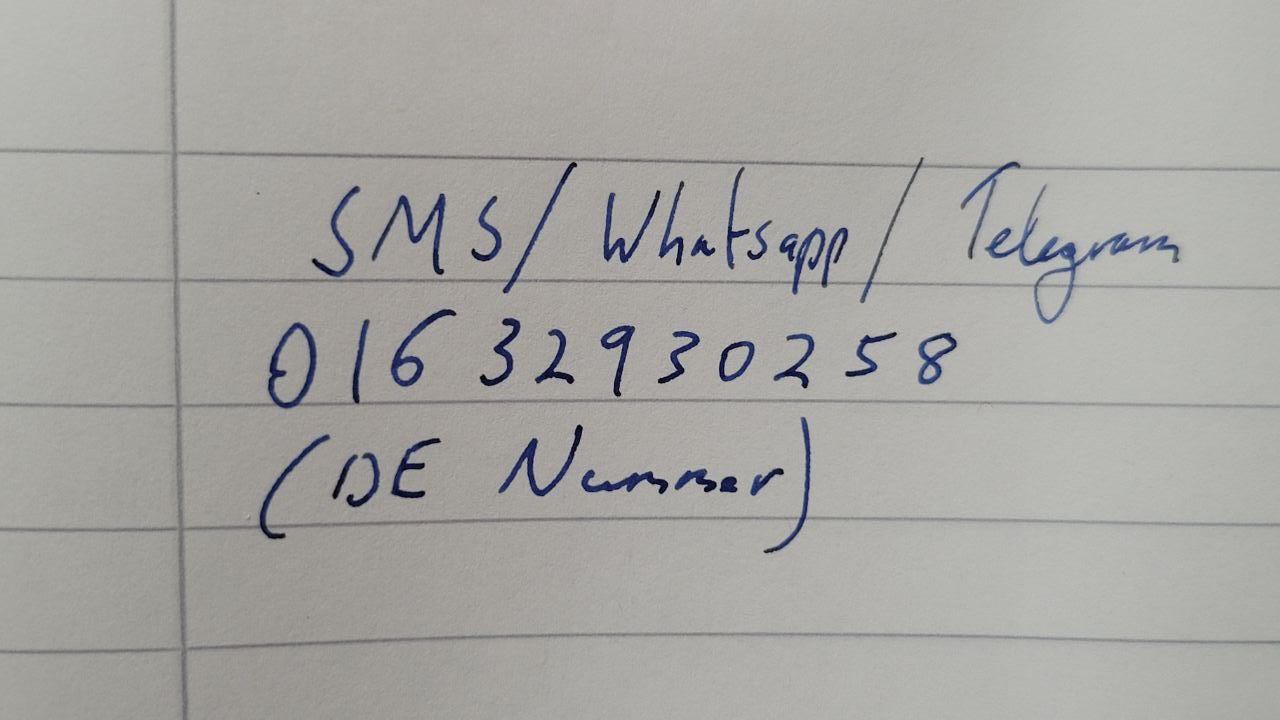 SMS/Whatsapp/Telegram
016 32930258
(DE Nummer)